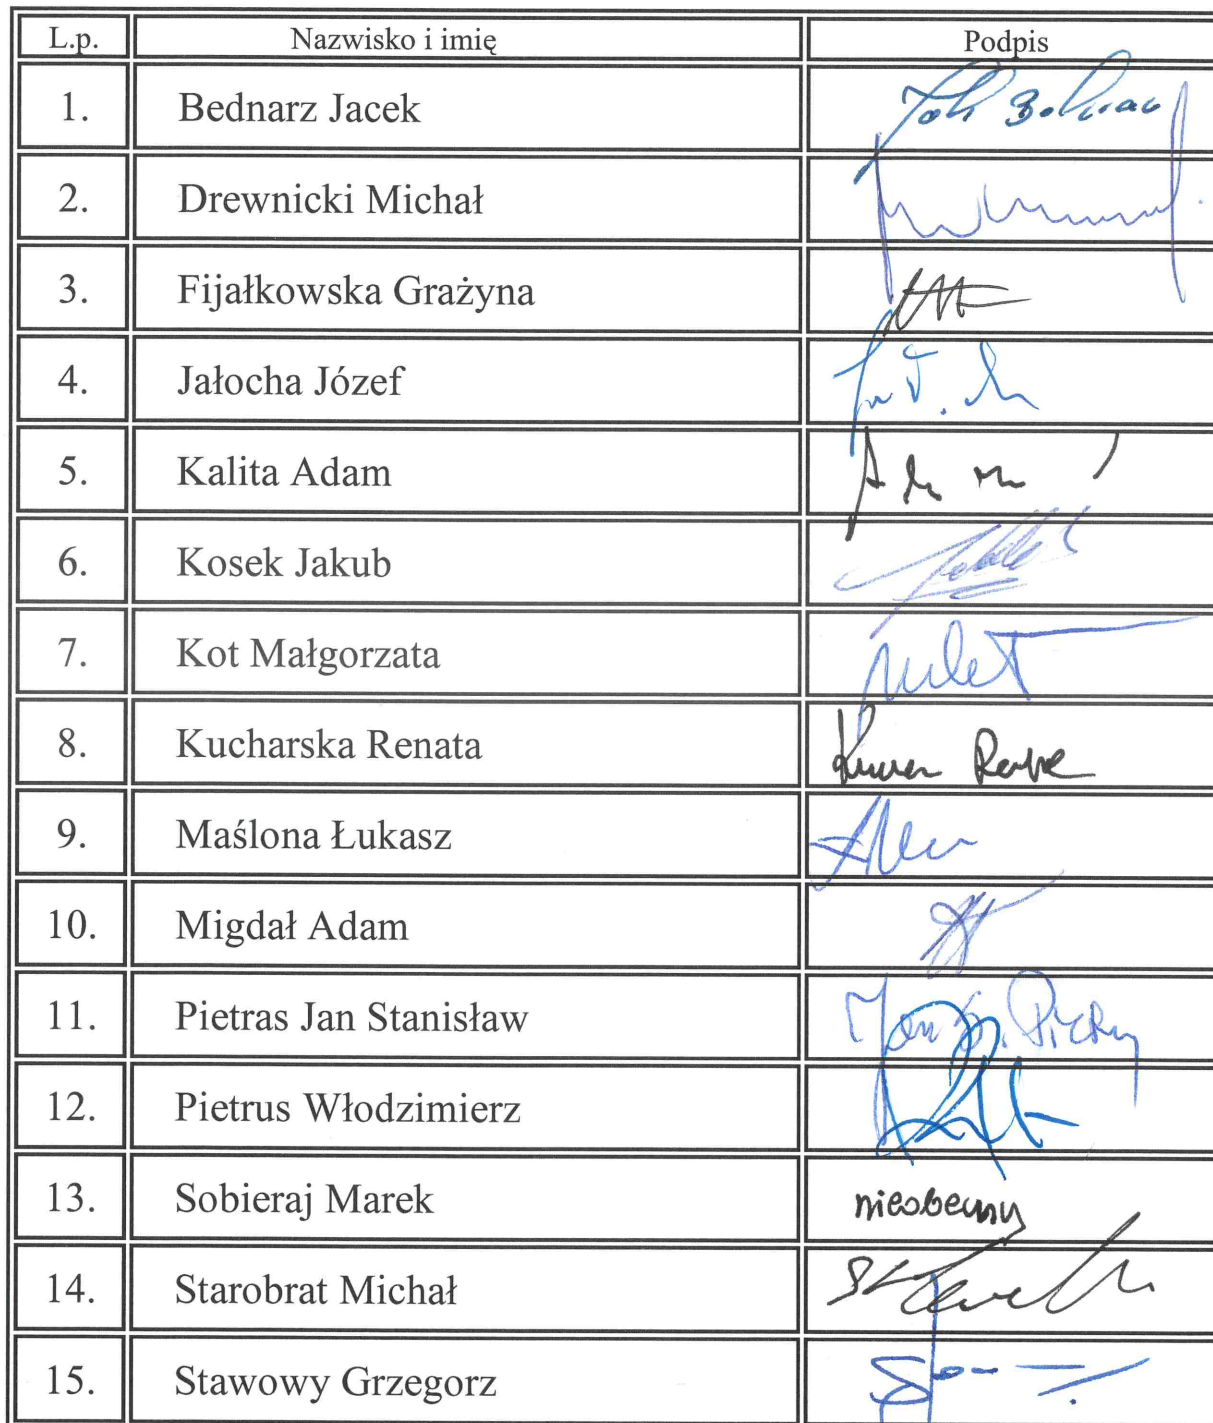 L.p. Nazwisko i imię Podpis
1. Bednarz Jacek
2. Drewnicki Michał
3. Fijałkowska Grażyna
4. Jałocha Józef
5. Kalita Adam
6. Kosek Jakub
7. Kot Małgorzata
8. Kucharska Renata
9. Maślona Łukasz
10. Migdał Adam
11. Pietras Jan Stanisław
12. Pietrus Włodzimierz
13. Sobieraj Marek nieobecny
14. Starobrat Michał
15. Stawowy Grzegorz